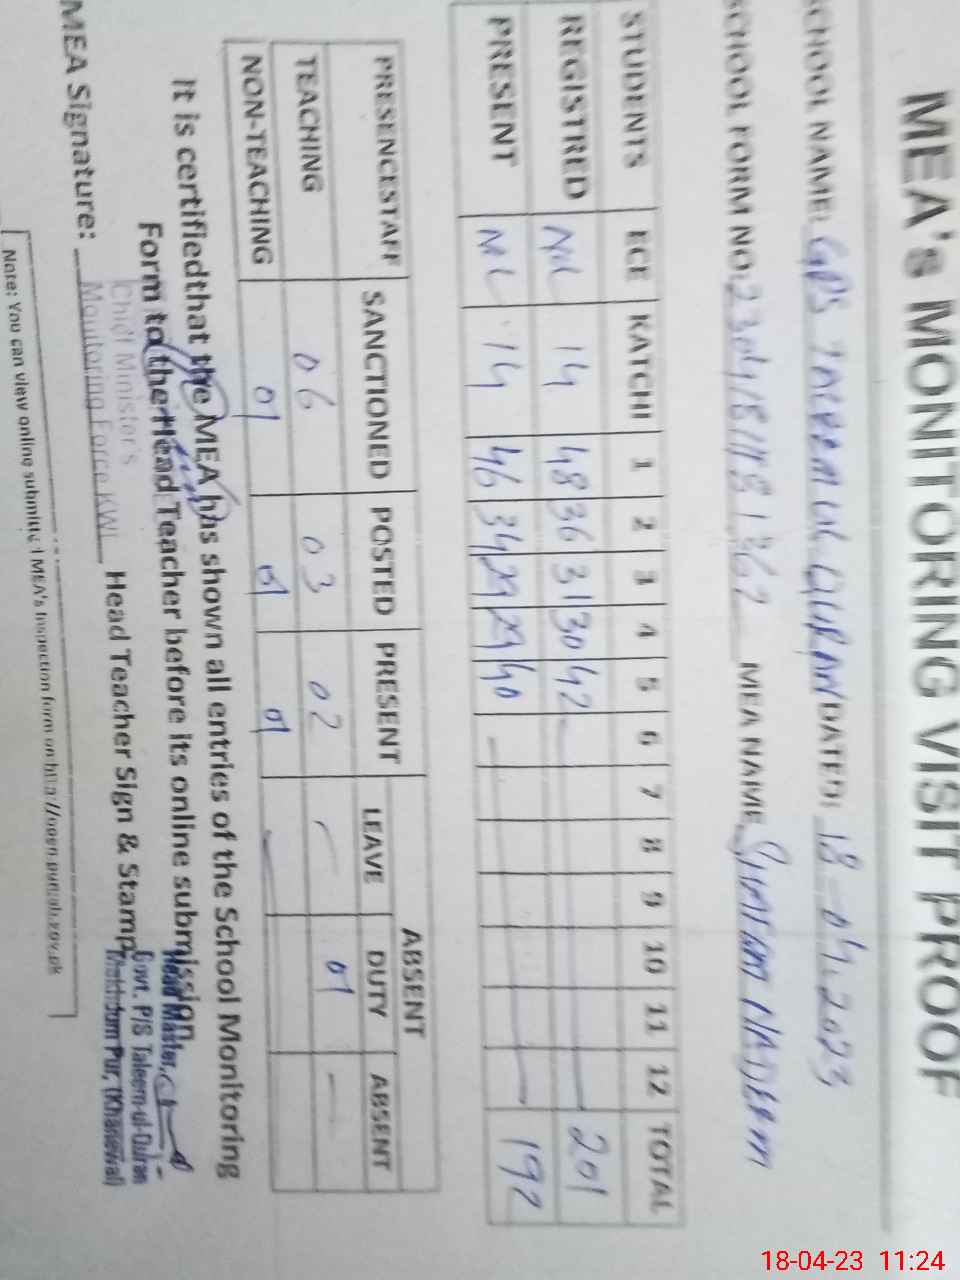 MEA's MONITORING VISIT PROOF
SCHOOL NAME: GPS TALEEM UL QURAN DATED: 18-04-2023
SCHOOL FORM NO: MEA NAME NADEEM
STUDENTS ECE KATCHI 1 2 3 4 5 6 7 8 9 10 11 12 TOTAL
REGISTRED NIL 14 48 36 31 30 42 201
PRESENT NIL 14 46 34 29 29 40 192
PRESENCESTAFF SANCTIONED POSTED PRESENT ABSENT
LEAVE DUTY ABSENT
TEACHING 06 03 02 - 01 -
NON-TEACHING 01 01 01 -
It is certifiedthat the MEA has shown all entries of the School Monitoring
Form to the Head Teacher before its online submission
Head Master,
Govt. P/S Taleem-ul-Quran
Makhdum Pur, (Khanewal)
MEA Signature: Head Teacher Sign & Stamp
Chief Minister's
Monitoring Force KWL
Note: You can view online submitted MEA's Inspection form on http://open.punjab.gov.pk
18-04-23 11:24